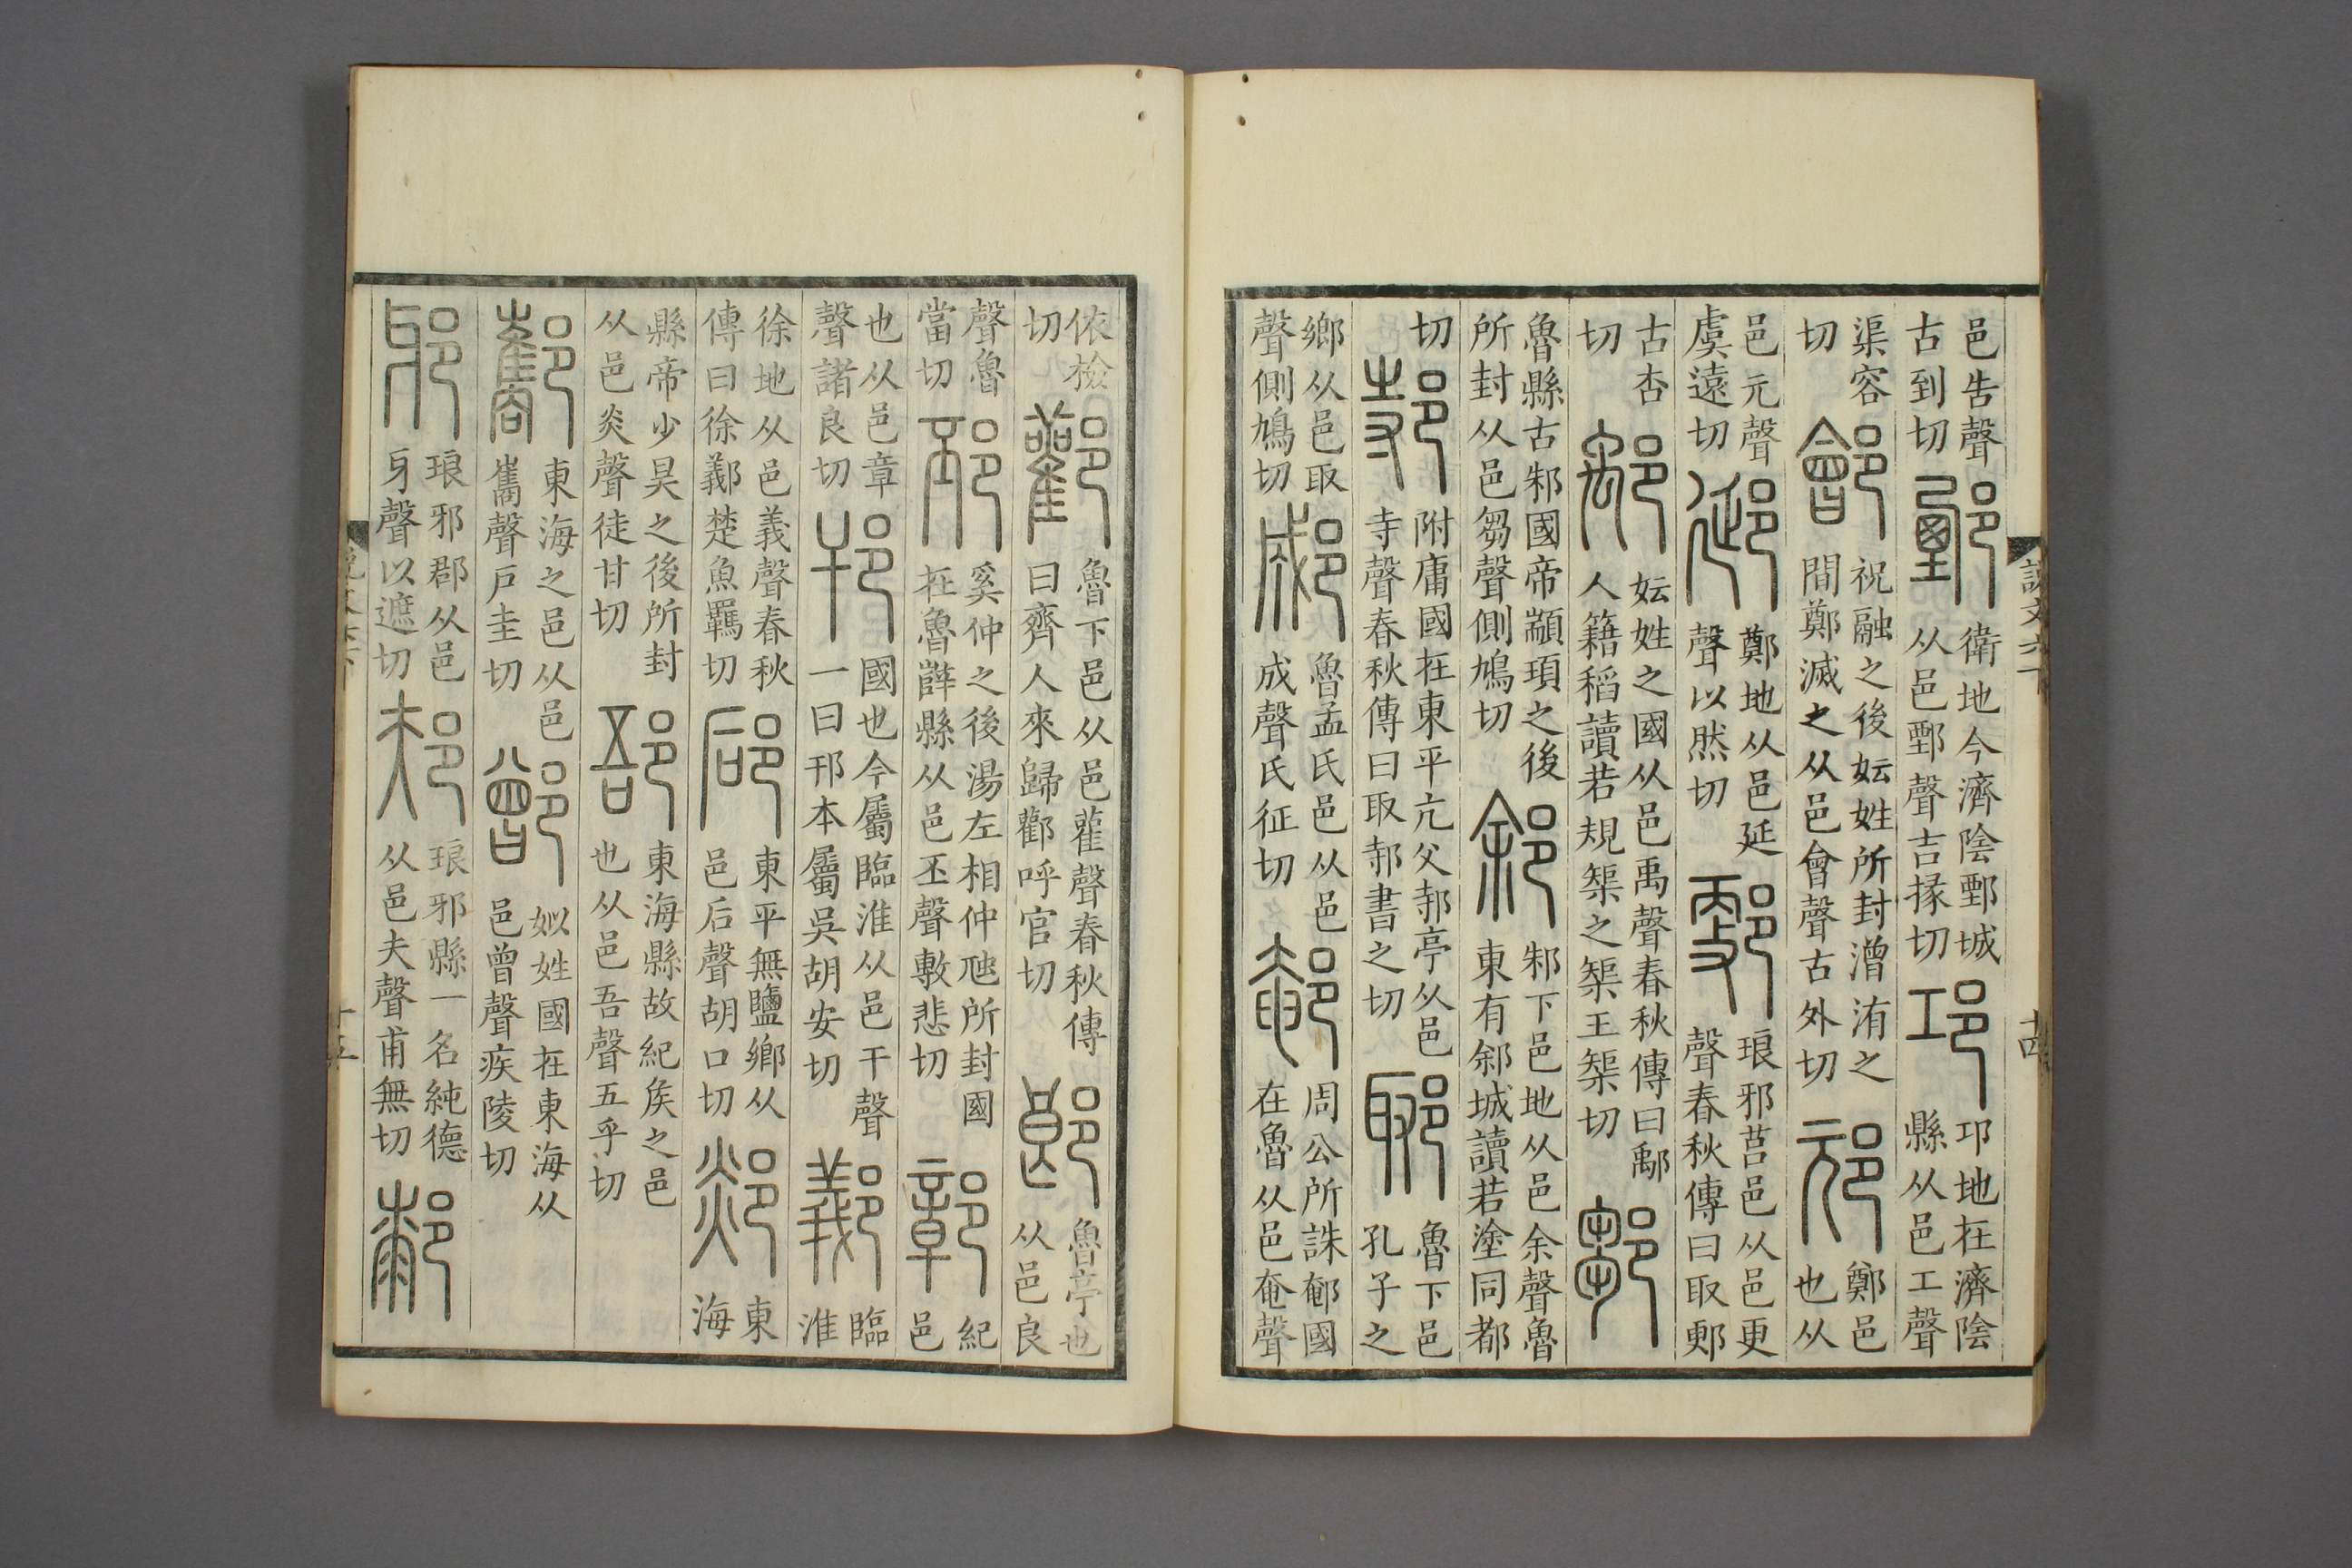 邑告聲古到切鄄衛地今濟陰鄄城从邑鄄聲吉掾切邛邛地在濟陰縣从邑工聲
渠容切鄶祝融之後妘姓所封潧洧之間鄭滅之从邑會聲古外切邧鄭邑也从
邑元聲虞遠切郔鄭地从邑延聲以然切郠琅邪莒邑从邑更聲春秋傳曰取郠
古杏切鄅妘姓之國从邑禹聲春秋傳曰鄅人籍稻讀若規榘之榘王榘切鄒
魯縣古邾國帝顓頊之後所封从邑芻聲側鳩切䣄邾下邑地从邑余聲魯東有䣄城讀若塗同都
切邿附庸國在東平亢父邿亭从邑寺聲春秋傳曰取邿書之切郰魯下邑孔子之
鄉从邑取聲側鳩切郕魯孟氏邑从邑成聲氏征切䣍周公所誅䣍國在魯从邑奄聲
說文六下
十四
依檢切酄魯下邑从邑雚聲春秋傳曰齊人來歸酄呼官切郎魯亭也从邑良
聲魯當切邳奚仲之後湯左相仲虺所封國在魯薛縣从邑丕聲敷悲切鄣紀邑
也从邑章聲諸良切邗國也今屬臨淮从邑干聲一曰邗本屬吳胡安切䣡臨淮
徐地从邑義聲春秋傳曰徐䣡楚魚羈切郈東平無鹽鄉从邑后聲胡口切郯東海
縣帝少昊之後所封从邑炎聲徒甘切郚東海縣故紀矦之邑也从邑吾聲五乎切
酅東海之邑从邑巂聲戶圭切鄫姒姓國在東海从邑曾聲疾陵切
邪琅邪郡从邑牙聲以遮切邞琅邪縣一名純德从邑夫聲甫無切
說文六下
十五